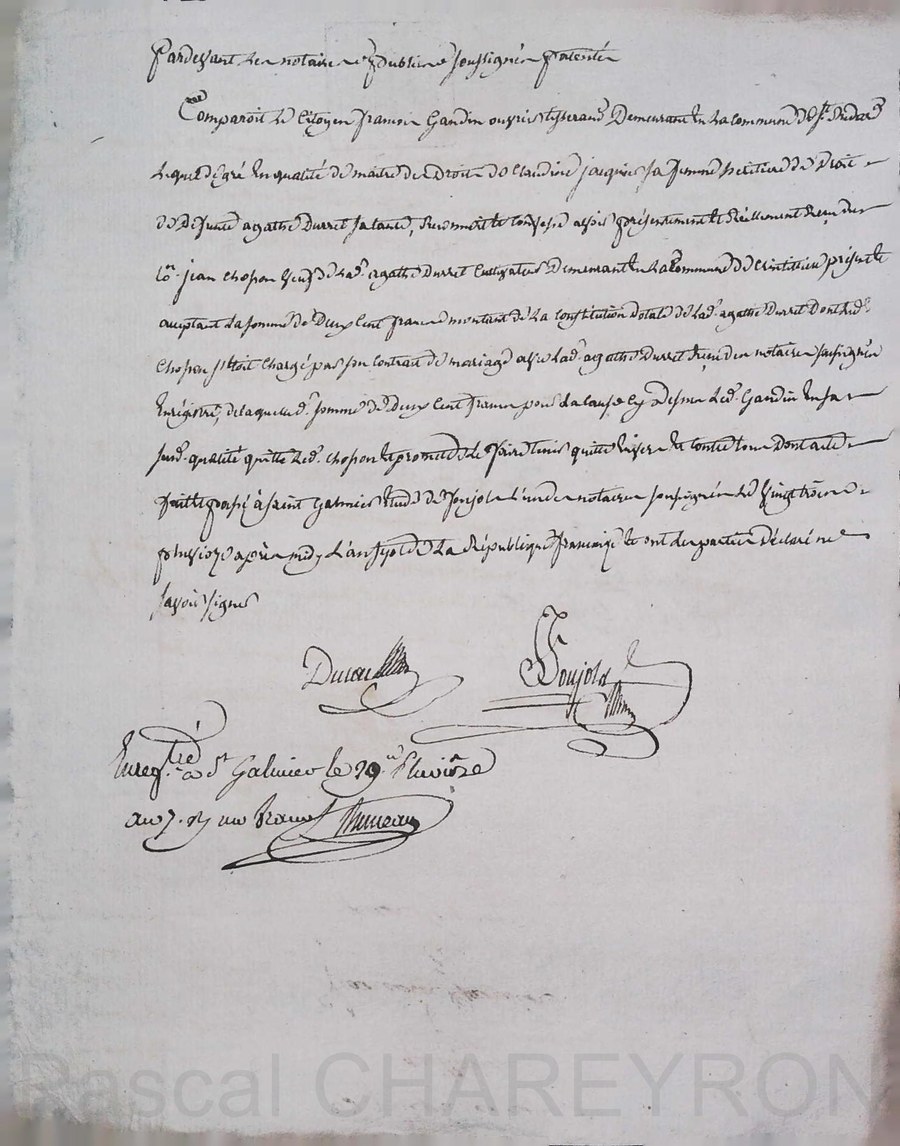 Pardevant les notaires publics soussignés patentés
Comparoit le Citoyen françois Gandin ouvrier tisserand Demeurant en la commune de St.
lequel de gré en qualité de maitre des Droits de Claudine jacquier sa femme heritiere de Droit
de Defunte agathe Durret sa tante, reconnoit et confesse avoir présentement et réellement reçu du
Con. jean chopon veuf de lad. agathe Durret Cultivateur Demeurant en la Commune de présent et
acceptant la somme de Deux Cent francs montant de la constitution Dotale de lad. agathe Durret Dont led.
Chopon s'étoit chargé par son contrat de mariage avec lad. agathe Durret reçu des notaires soussignés
Enregistré, de laquelle d. somme de Deux Cent francs pour la cause cy dessus led. Gandin en sa
susd. qualité quitte led. chopon et promet de le faire tenir quitte envers et contre tous Dont acte
fait et passé à saint Galmier étude de Soujols l'un des notaires soussignés le vingt trois
pluviose après midy l'an sept de la République française et ont les parties Déclaré ne
savoir signer
Soujols
Enregtré à St Galmier le 29 Pluviôse
an 7. r/ un franc
Pascal CHAREYRON